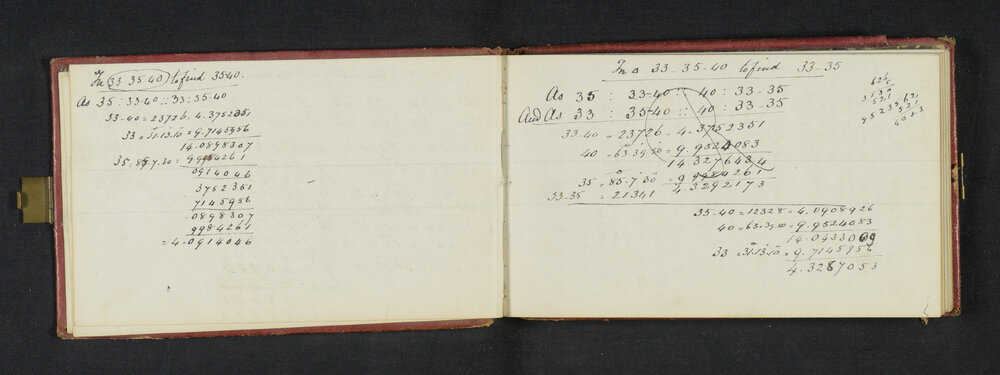 In 33 35 40 to find 35.40.
As 35 : 33-40 :: 33 : 35-40
33-40 = 23726 = 4.3752351
33 = 31.13.10 = 9.7145956
14.0898307
35 = 85.7.30 = 9.9984261
0914046
3752351
7145956
.0898307
9984261
= 4.0914046
In a 33-35-40 to find 33-35
As 35 : 33-40 :: 40 : 33-35
And As 33 : 35-40 :: 40 : 33-35
33-40 = 23726 = 4.3752351
40 = 63.39.50 = 9.9524083
14.3276434
35 = 85.7.30 = 9.9984261
33-35 = 21341 4.3292173
35-40 = 12328 = 4.0908926
40 = 63.39.50 = 9.9524083
14.0433009
33 = 31.13.10 = 9.7145956
4.3287053